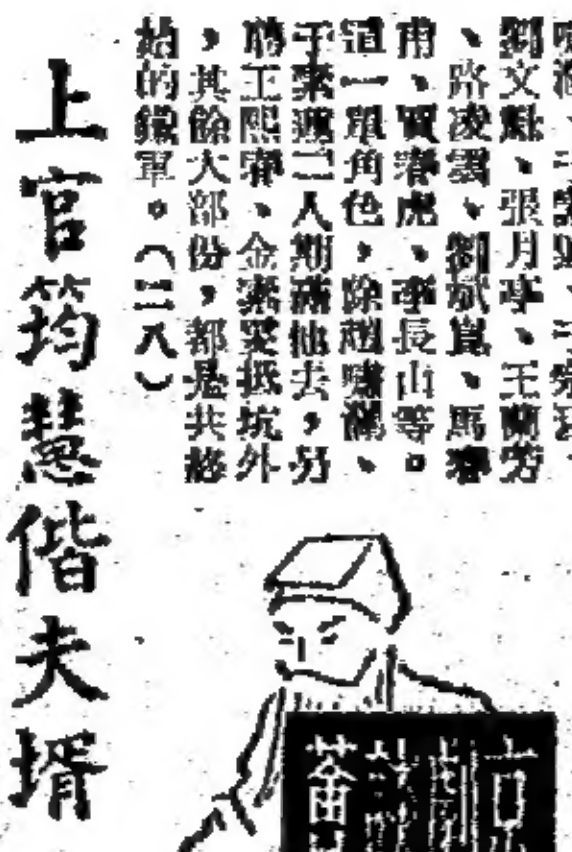 劉文魁、張月亭、王蘭芳
、路凌雲、劉斌崑、馬春
甫、賈春虎、李長山等。
這一單角色,除趙嘯瀾、
于素蓮二人期滿他去,另
聘王熙春、金素雯抵坑外
,其餘大部份,都是共終
始的鐵軍。(二八)
上官筠慧偕夫壻